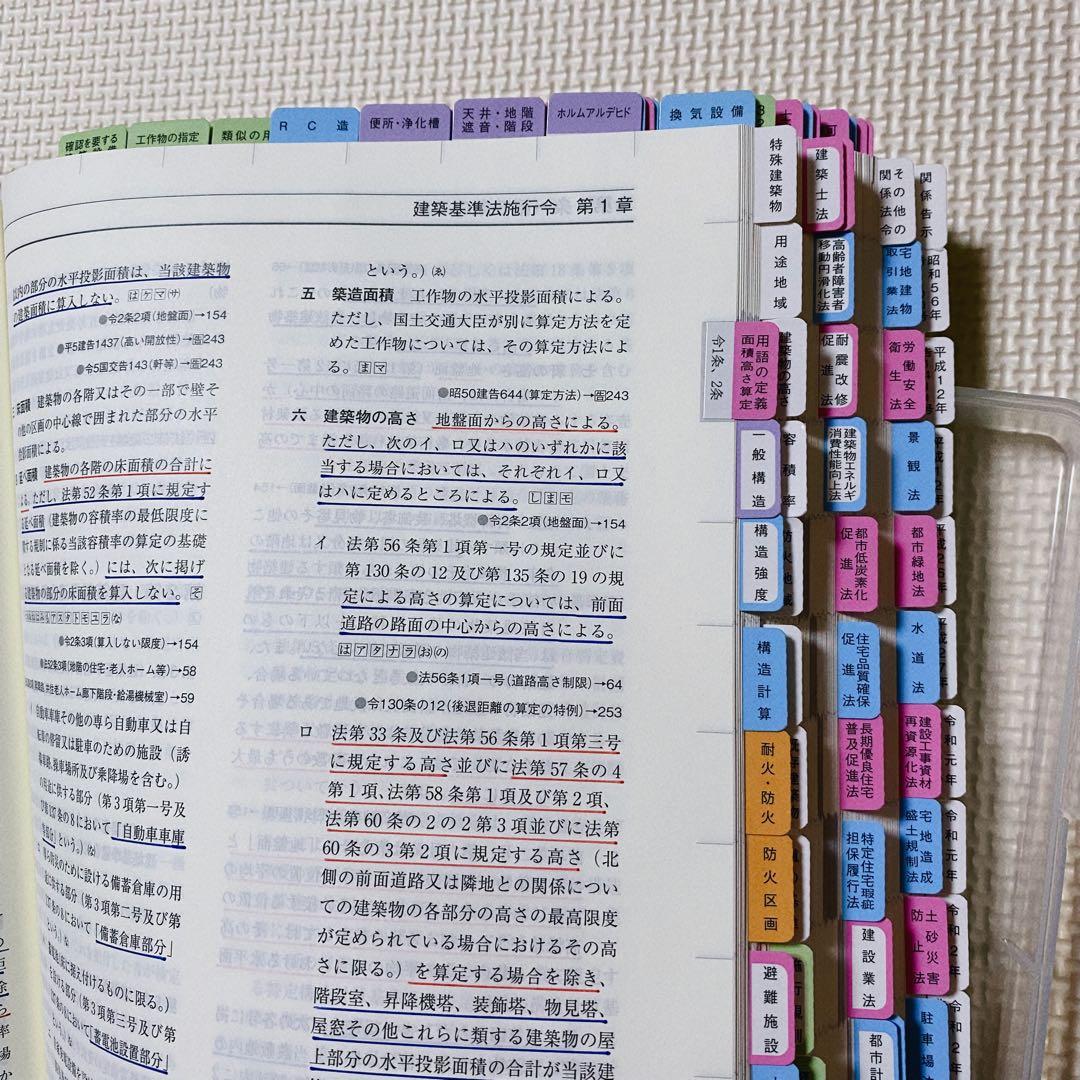 確認を要する
工作物の指定
類似の用
RC造
便所・浄化槽
天井・地階
遮音・階段
ホルムアルデヒド
換気設備
建築基準法施行令 第1章
以内の部分の水平投影面積は、当該建築物
の建築面積に算入しない。
●令2条2項(地盤面)→154
●平5建告1437(高い開放性)→告243
●令5国交告143(軒等)→告243
床面積 建築物の各階又はその一部で壁そ
の他の区画の中心線で囲まれた部分の水平
投影面積による。
延べ面積 建築物の各階の床面積の合計に
よる。ただし、法第52条第1項に規定す
る延べ面積(建築物の容積率の最低限度に
関する規制に係る当該容積率の算定の基礎
となる延べ面積を除く。)には、次に掲げ
る建築物の部分の床面積を算入しない。
●令2条3項(算入しない限度)→154
●法52条3項(地階の住宅・老人ホーム等)→58
共住老人ホーム廊下階段・給湯機械室)→59
自動車車庫その他の専ら自動車又は自
転車の停留又は駐車のための施設(誘
導車路、操車場所及び乗降場を含む。)
の用途に供する部分(第3項第一号及
び第137条の8において「自動車車庫
等部分」という。)
専ら防災のために設ける備蓄倉庫の用
途に供する部分(第3項第二号及び第
137条の8において「備蓄倉庫部分」
という。)
蓄電池(床に据え付けるものに限る。)
を設ける部分(第3項第三号及び第
「蓄電池設置部分」
という。)
五 築造面積 工作物の水平投影面積による。
ただし、国土交通大臣が別に算定方法を定
めた工作物については、その算定方法によ
る。はマ
●昭50建告644(算定方法)→告243
六 建築物の高さ 地盤面からの高さによる。
ただし、次のイ、ロ又はハのいずれかに該
当する場合においては、それぞれイ、ロ又
はハに定めるところによる。しまモ
●令2条2項(地盤面)→154
イ 法第56条第1項第一号の規定並びに
第130条の12及び第135条の19の規
定による高さの算定については、前面
道路の路面の中心からの高さによる。
はアタナラ(お)(の)
●法56条1項一号(道路高さ制限)→64
●令130条の12(後退距離の算定の特例)→253
ロ 法第33条及び法第56条第1項第三号
に規定する高さ並びに法第57条の4
第1項、法第58条第1項及び第2項、
法第60条の2の2第3項並びに法第
60条の3第2項に規定する高さ(北
側の前面道路又は隣地との関係につい
ての建築物の各部分の高さの最高限度
が定められている場合におけるその高
さに限る。)を算定する場合を除き、
階段室、昇降機塔、装飾塔、物見塔、
屋窓その他これらに類する建築物の屋
上部分の水平投影面積の合計が当該建
令1条、2条
用語の定義
面積高さ算定
一般構造
構造強度
構造計算
耐火防火
防火区画
避難施設
特殊建築物
用途地域
建築物の高さ
容積率
防火地域
建築士法
高齢者障害者
移動円滑化法
耐震改修
促進法
建築物エネルギ
消費性能向上法
都市低炭素化
促進法
住宅品質確保
促進法
長期優良住宅
普及促進法
特定住宅瑕疵
担保履行法
建設業法
都市計
その他の
関係法令
宅地建物
取引業法
労働安全
衛生法
景観法
都市緑地法
水道法
建設工事資材
再資源化法
宅地造成
盛土規制法
土砂災害
防止法
駐車場
関係告示
昭和56年
平成12年
平成26年
平成27年
令和元年
令和元年
令和2年
令和2年